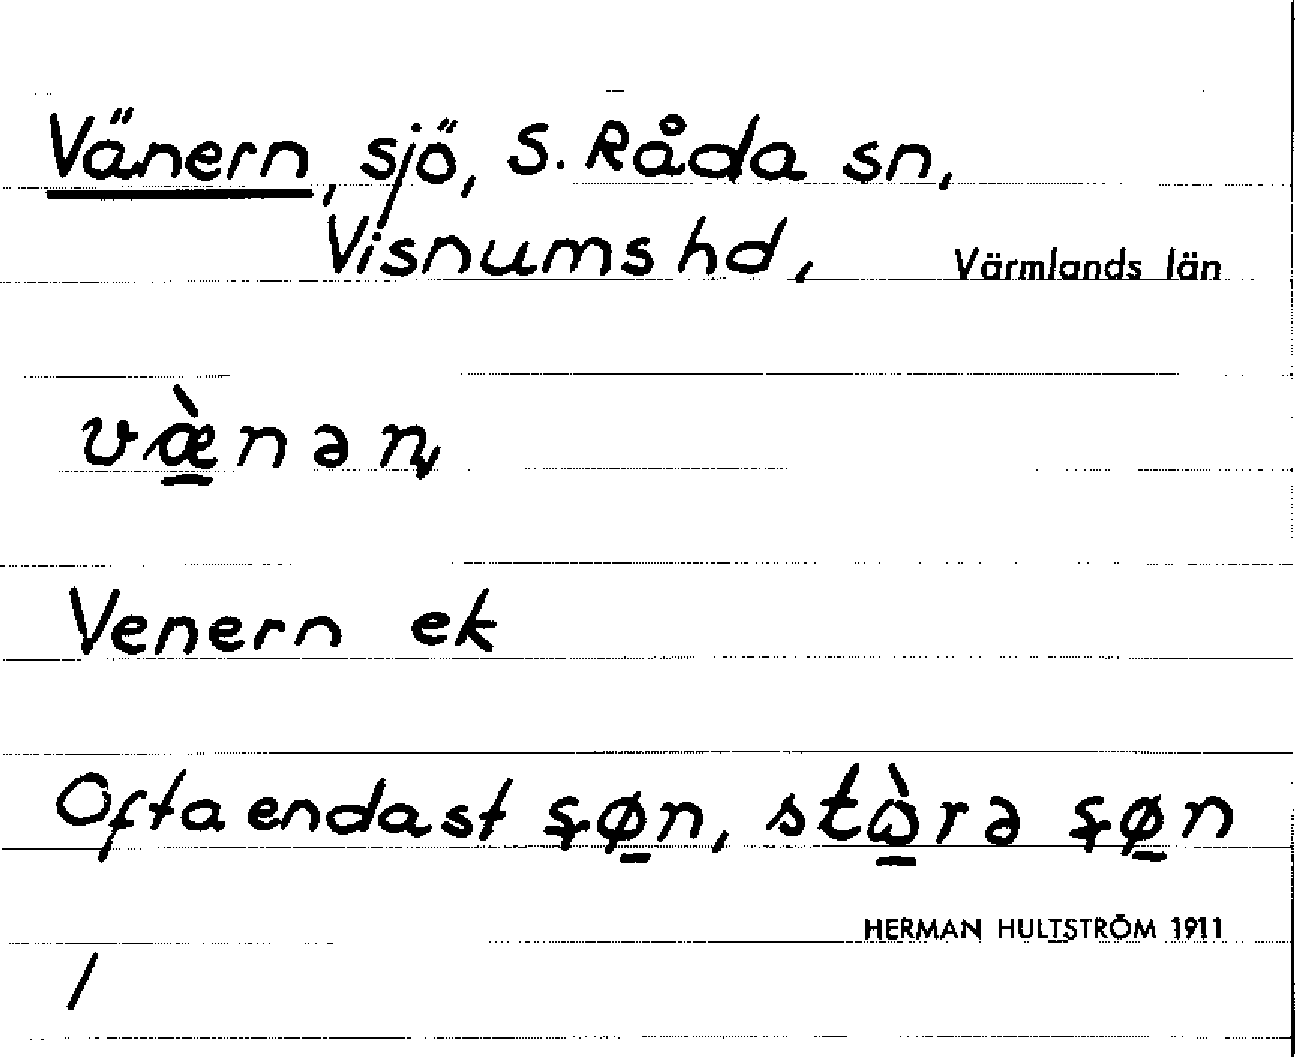 Vänern, sjö, S. Råda sn,
Visnums hd, Värmlands län
væ̠̀nəɳ
Venern ek
Ofta endast ʂø̠n, stɷ̠̀rə ʂø̠n
HERMAN HULTSTRÖM 1911
/